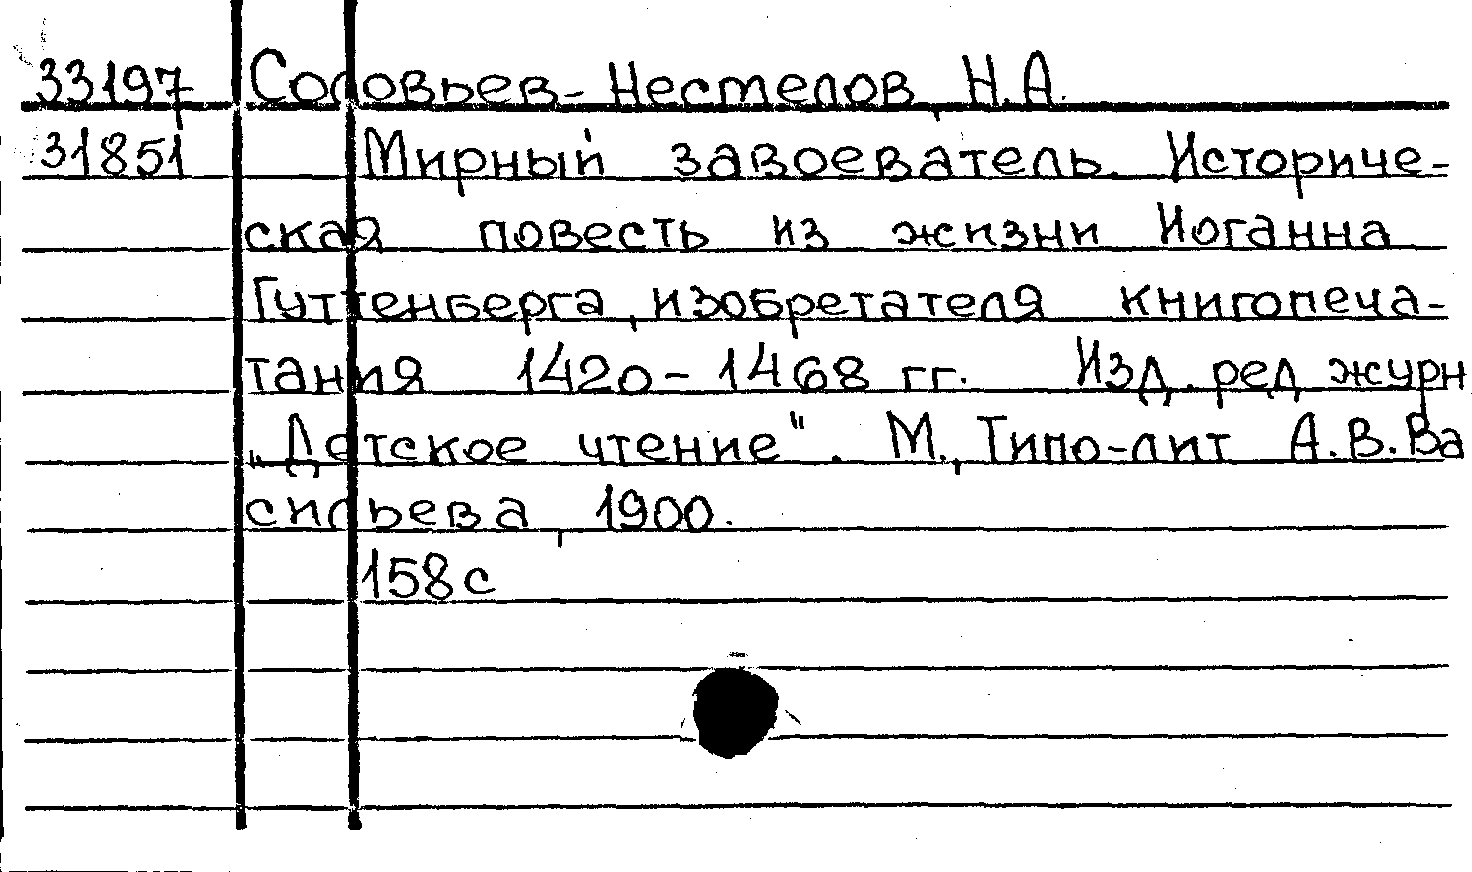 33197 Соловьев-Нестелов, Н.А.
31851 Мирный завоеватель. Историче-
ская повесть из жизни Иоганна
Гуттенберга, изобретателя книгопеча-
тания 1420-1468 гг. Изд. ред журн
„Детское чтение". М., Типо-лит А.В.Ва
сильева, 1900.
158с